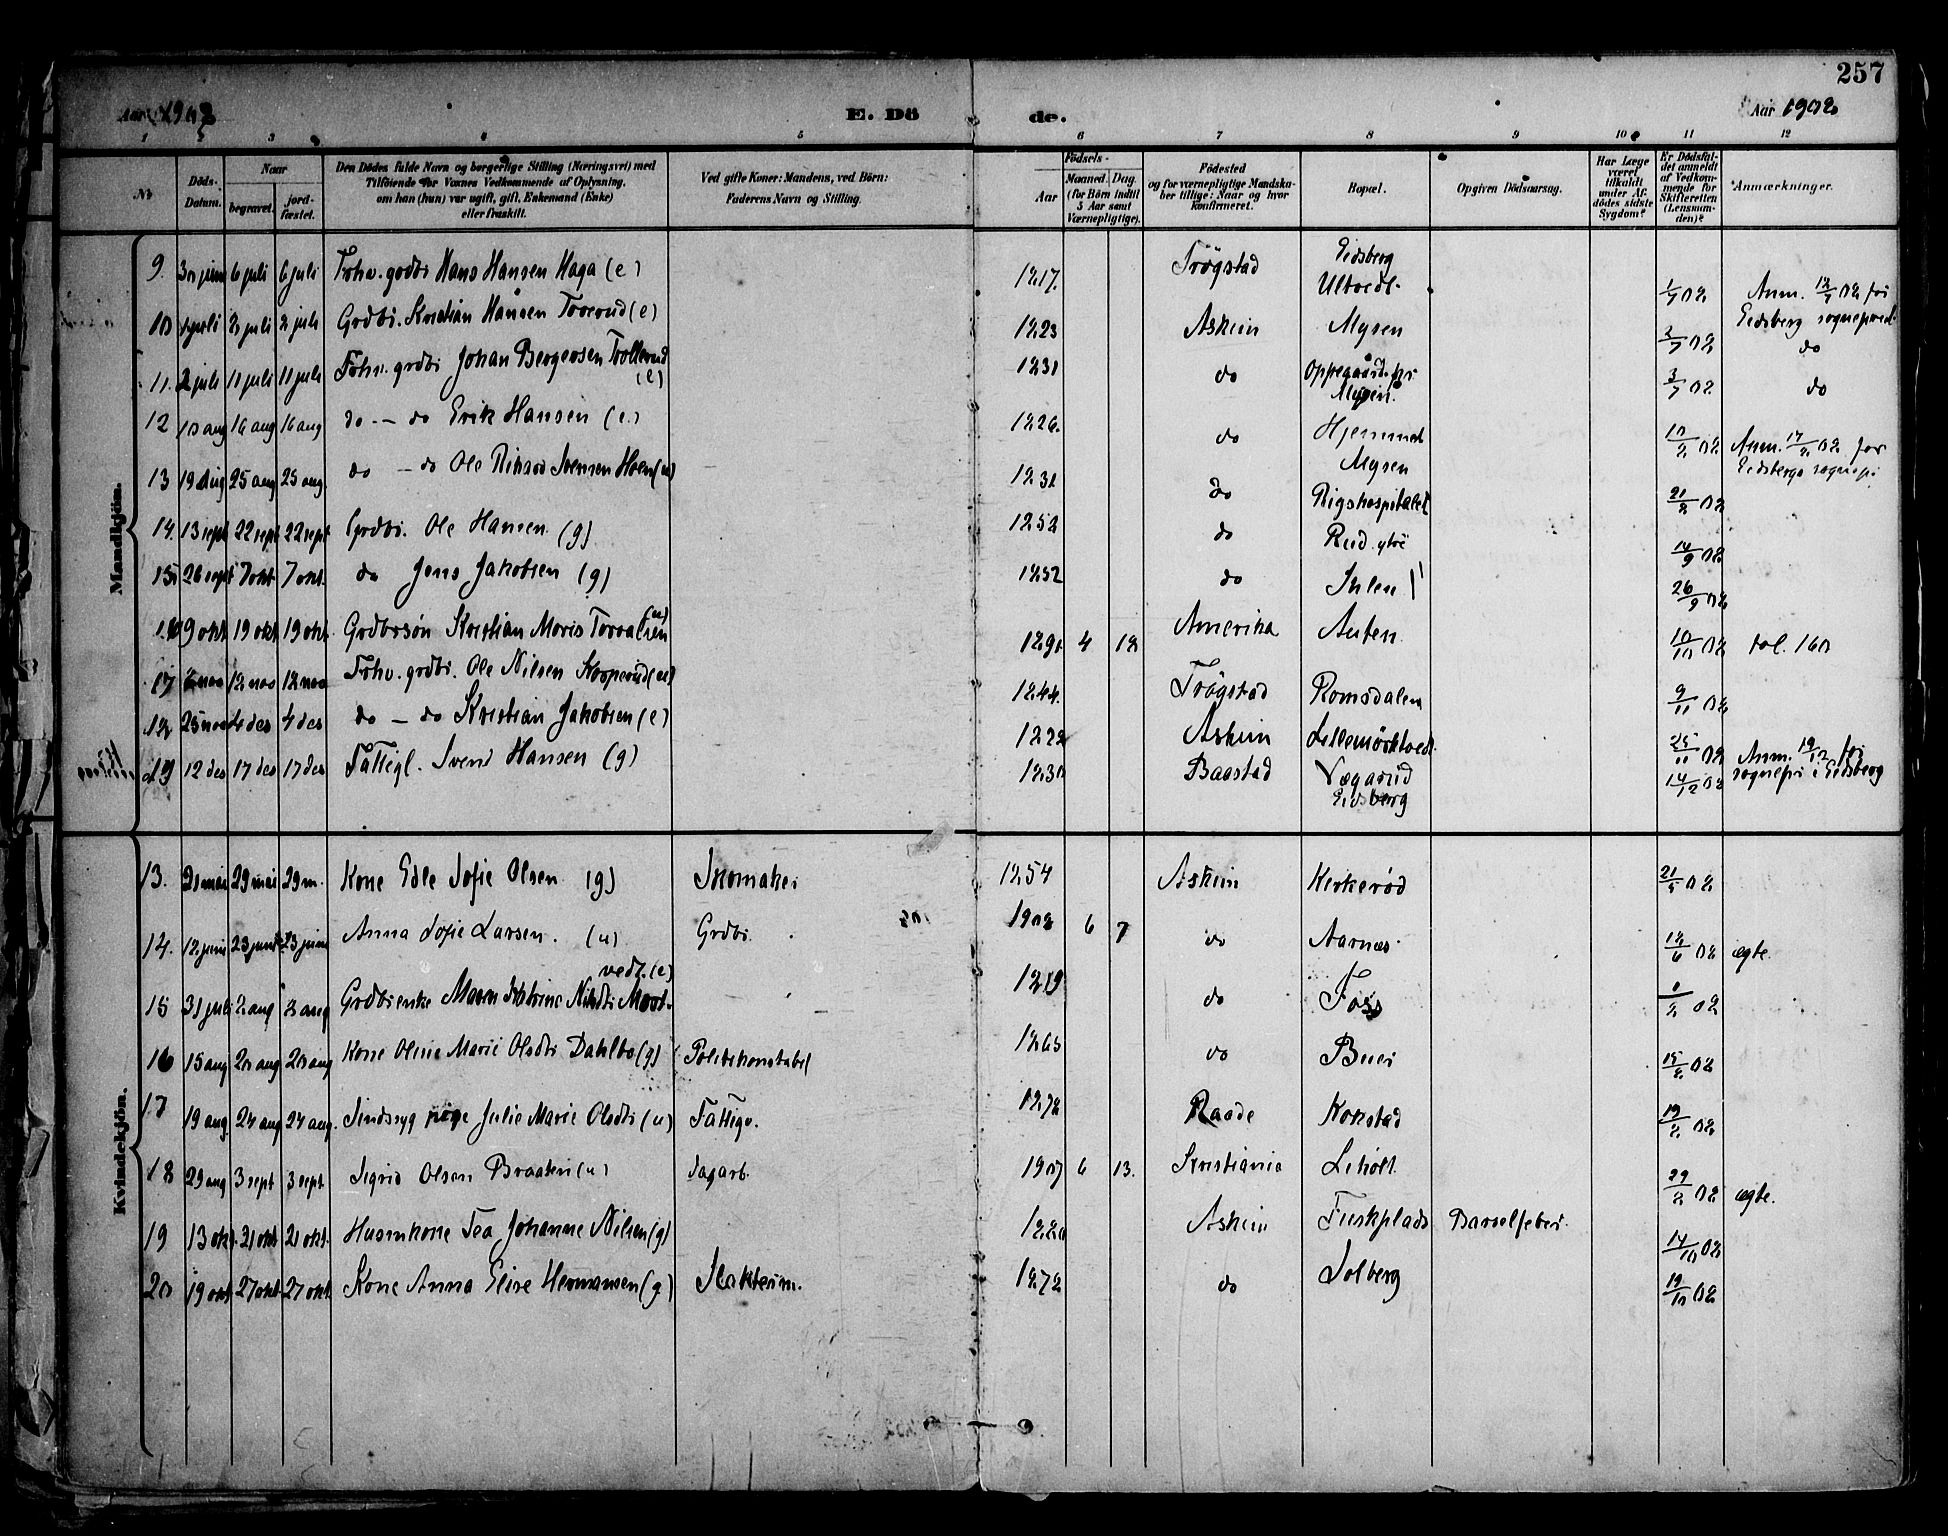 257
Aar 1902 E. Döde. Aar 1902
1 2 3 4 5 6 7 8 9 10 11 12
No
Döds-Datum.
Naar
begravet.
jordfæstet.
Den Dödes fulde Navn og borgerlige Stilling (Næringsvei) med
Tilföiende for Voxnes Vedkommende af Oplysning,
om han (hun) var ugift, gift, Enkemand (Enke)
eller fraskilt.
Ved gifte Koner: Mandens, ved Börn:
Faderens Navn og Stilling.
Födsels-
Aar
Maaned. Dag.
(for Börn indtil
5 Aar samt
Værnepligtige).
Födested
og for værnepligtige Mandska-
ber tillige: Naar og hvor
konfirmeret.
Bopæl.
Opgiven Dödsaarsag.
Har Læge
været
tilkaldt
under Af-
dödes sidste
Sygdom?
Er Dödsfal-
det anmeldt
af Vedkom-
mende for
Skifteretten
(Lensman-
den)?
Anmærkninger.
Mandkjön.
9. 30 juni 6 juli 6 juli Fohv. grdbr Hans Hansen Haga (e) 1817. Trøgstad Eidsberg Ultvedt. 1/7 02 Anm. 12/7 02 for Eidsberg sognepræst
10 1 juli 2 juli 2 juli Grdbr. Kristian Hansen Toverud (e) 1823 Askim Mysen 2/7 02 do
11. 2 juli 11 juli 11 juli Fohv. grdbr Johan Bergersen Trollerud (e) 1831 do Oppegaard pr Mysen. 3/7 02 do
12 10 aug 16 aug 16 aug do - do Erik Hansen (e.) 1826. do Hjemmet Mysen 10/8 02 Anm. 17/8 02 for Eidsbergs sognepr
13 19 aug 25 aug 25 aug do - do Ole Svensen Hoen (u) 1831 do Rigshospitalet 21/8 02
14. 13 sept 22 sept 22 sept Grdbr. Ole Hansen (g) 1852 do Rud ytre 14/9 02
15 26 sept 7 okt. 7 okt. do Jens Jakobsen (g) 1852 do Ihlen 26/9 02
16 9 okt 19 okt 19 okt. Grdbrsøn Kristian Moris Torvalsen (u) 1890 4 12 Amerika Auten. 10/10 02 fol. 160
17 12 nov 12 nov Fohv. grdbr. Ole Nilsen Korperud (u) 1844. Trøgstad Romsdalen 9/11 02
18 25 nov 4 des 4 des do - do Kristian Jakobsen (e) 1828 Askim Lillemørktvedt. 25/11 02
19 12 des 17 des 17 des Fattigl. Svend Hansen (g) 1830 Baastad Vægarud Eidsberg 14/12 02 Anm. 19/12 for sognepr i Eidsberg
Kvindekjön.
13. 21 mai 29 mai 29 m. Kone Edle Sofie Olsen (g) Skomaker 1854 Askim Kirkerød 21/5 02
14. 12 juni 23 juni 23 juni Anna Sofie Larsen. (u) Grdbr. 1902 6 7 do Aarnæs. 12/6 02 ægte.
15 31 juli 2 aug 2 aug Grdbrenke Maren Katrine Nilsdtr Mørt-vedt. (e) 1819 do Foss 1/8 02
16 15 aug 20 aug 20 aug Kone Oline Marie Olsdtr Dahlbo (g) Politikonstabel 1865 do Buer 15/8 02
17 19 aug. 24 aug 24 aug. Sindssyg pige Julie Marie Olsdtr (u) Fattigv. 1872 Raade Korstad 19/8 02
18 29 aug 3 sept 3 sept Sigrid Olsen Braaten (u) Dagarb. 1907 6 13. Kristiania Liholt 29/8 02 ægte.
19 13 okt. 21 okt 21 okt. Husmkone Tea Johanne Nilsen (g) 1880 Askim Fuskplads Barselfeber. 14/10 02
20 19 okt 27 okt 27 okt. Kone Anna Elise Hermansen (g) 1872 do Solberg 19/10 02